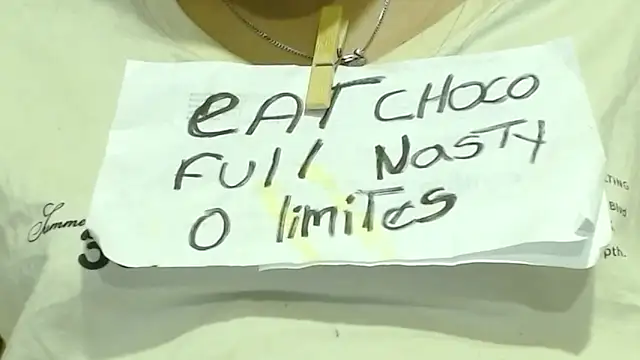 eAT CHOCO
FUll NasTy
0 limiTes
Summe
3
LTING
Blvd
pth.